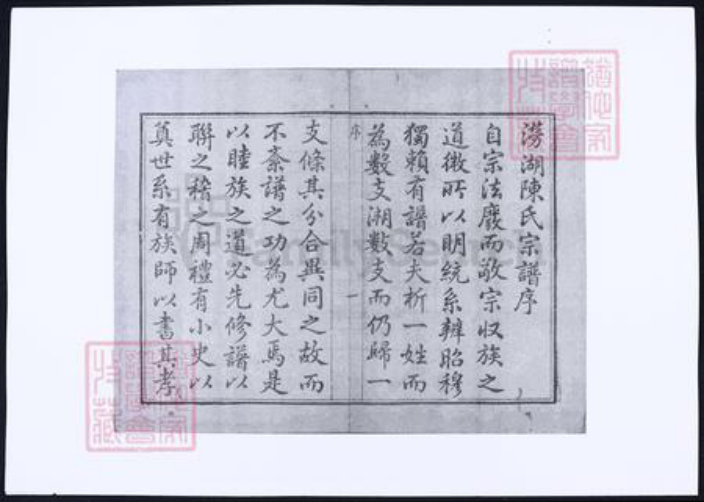 澇湖陳氏宗譜序
自宗法廢而敬宗收族之
道微所以明統系辨昭穆
獨賴有譜若夫析一姓而
為數支溯數支而仍歸一
序 一
支條其分合異同之故而
不紊譜之功為尤大焉是
以睦族之道必先修譜以
聯之稽之周禮有小史以
奠世系有族師以書其孝
猶他家
譜學會
特藏
猶他家
譜學會
特藏
FamilySearch